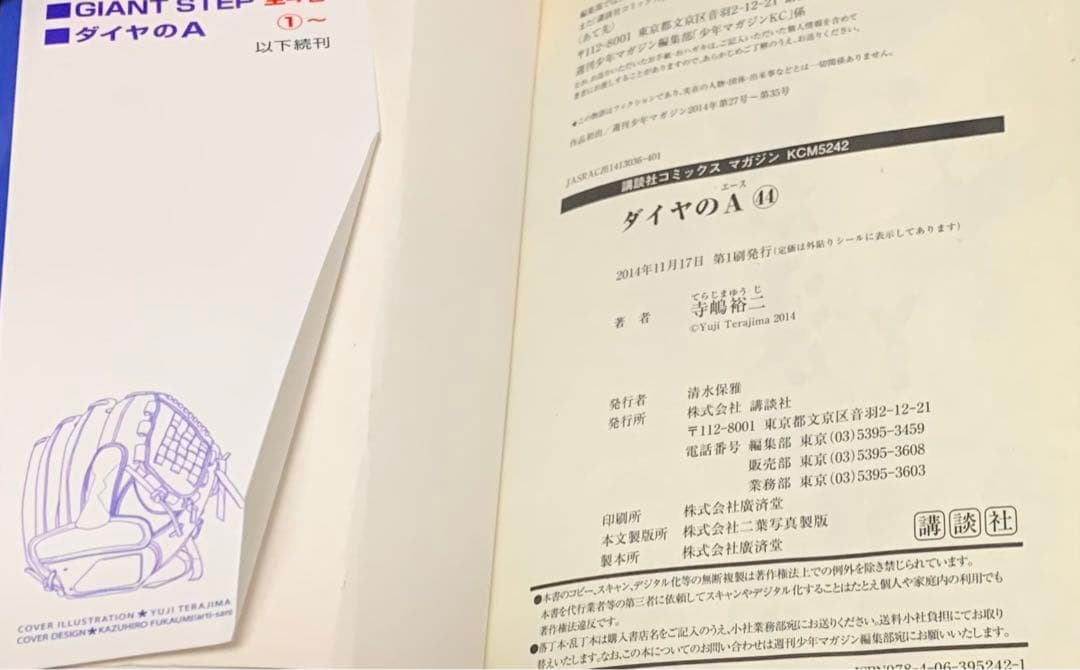 ■GIANT STEP
■ダイヤのA
①〜
以下続刊
COVER ILLUSTRATION★YUJI TERAJIMA
COVER DESIGN★KAZUHIRO FUKAUMI(arti-san)
(あて先)
〒112-8001 東京都文京区音羽2-12-21 講談社
週刊少年マガジン編集部「少年マガジンKC」係
なお、お送りいただいたお手紙・おハガキは、ご記入いただいた個人情報を含めて
著者にお渡しすることがありますので、あらかじめご了解のうえ、お送りください。
★この物語はフィクションであり、実在の人物・団体・出来事などとは一切関係ありません。
作品初出/週刊少年マガジン2014年第27号〜第35号
JASRAC出1413036-401
講談社コミックス マガジン KCM5242
エース
ダイヤのA ㊹
2014年11月17日 第1刷発行(定価は外貼りシールに表示してあります)
てらじまゆうじ
著 者 寺嶋裕二
©Yuji Terajima 2014
発行者 清水保雅
発行所 株式会社 講談社
〒112-8001 東京都文京区音羽2-12-21
電話番号 編集部 東京(03)5395-3459
販売部 東京(03)5395-3608
業務部 東京(03)5395-3603
印刷所 株式会社廣済堂
本文製版所 株式会社二葉写真製版
製本所 株式会社廣済堂
講談社
●本書のコピー、スキャン、デジタル化等の無断複製は著作権法上での例外を除き禁じられています。
本書を代行業者等の第三者に依頼してスキャンやデジタル化することはたとえ個人や家庭内の利用でも
著作権法違反です。
●落丁本・乱丁本は購入書店名をご記入のうえ、小社業務部宛にお送りください。送料小社負担にてお取り
替えいたします。なお、この本についてのお問い合わせは週刊少年マガジン編集部宛にお願いいたします。
ISBN978-4-06-395242-1